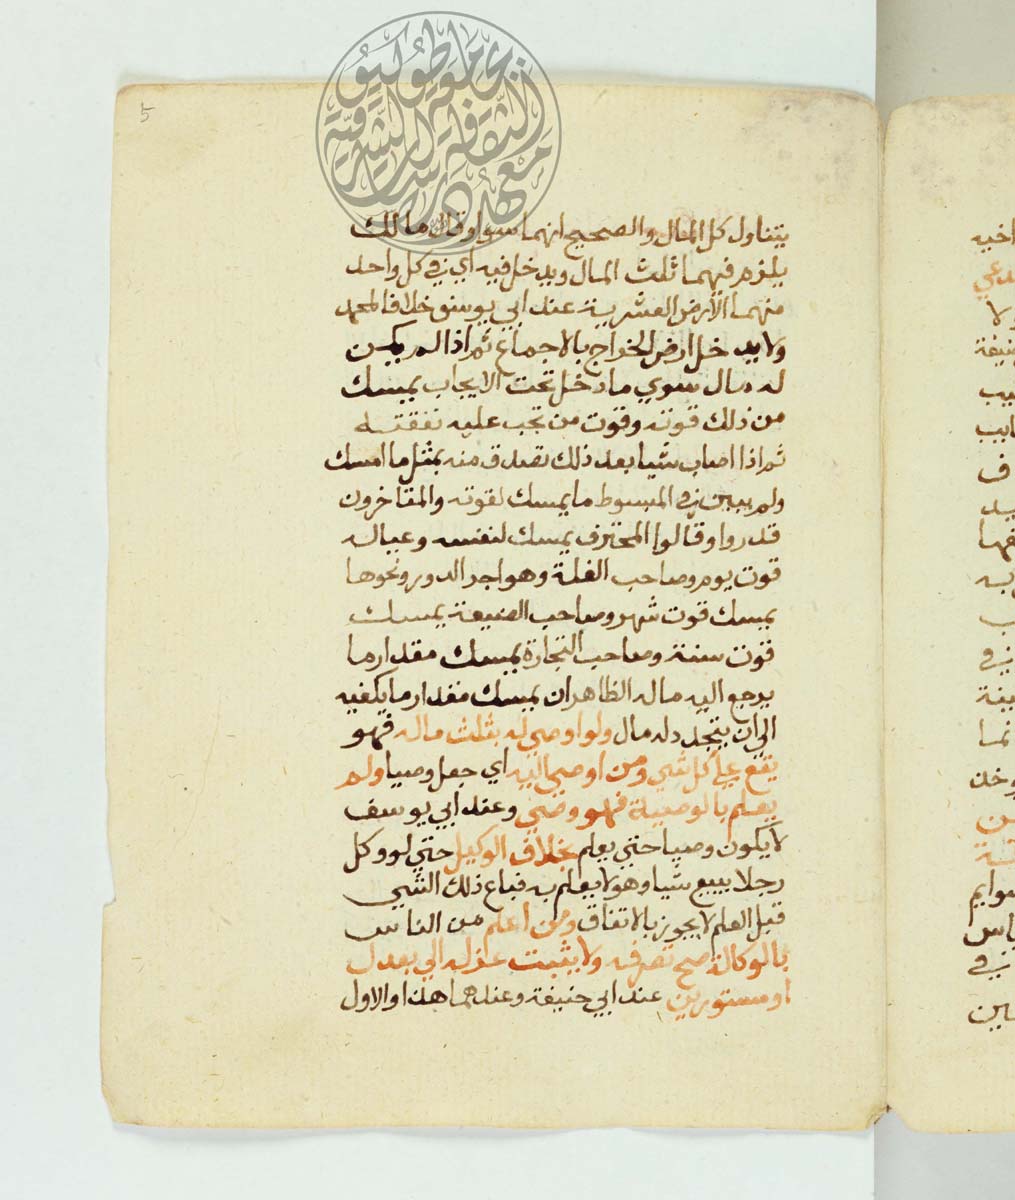 5
يتناول كل المال والصحيح انهما سوا وقال مالك
يلزم فيهما ثلث المال ويدخل فيه اي في كل واحد
منهما الارض العشرية عند ابي يوسف خلافا لمحمد
ولا يدخل ارض الخراج بالاجماع ثم اذا لم يكن
له مال سوي ما دخل تحت الايجاب يمسك
من ذلك قوته وقوت من تجب عليه نفقته
ثم اذا اصاب شيا بعد ذلك تصدق منه بمثل ما امسك
ولم يبين في المبسوط ما يمسك لقوته والمتاخرون
قدروا وقالوا المحترف يمسك لنفسه وعياله
قوت يوم وصاحب الغلة وهو اجر الدور ونحوها
يمسك قوت شهر وصاحب الضيعة يمسك
قوت سنة وصاحب التجارة يمسك مقدار ما
يرجع اليه ماله الظاهر ان يمسك مقدار ما يكفيه
الي ان يتجدد له مال ولو اوصي له بثلث ماله فهو
يقع علي كل شي ومن اوصي اليه اي جعل وصيا ولم
يعلم بالوصية فهو وصي وعند ابي يوسف
لا يكون وصيا حتي يعلم بخلاف الوكيل حتي لو وكل
رجلا ببيع شيا وهو لا يعلم به فباع ذلك الشي
قبل العلم لا يجوز بالاتفاق ومن اعلم من الناس
بالوكالة صح تصرفه ولا يثبت عزله الي بعدل
او مستورين عند ابي حنيفة وعندهما هذا والاول